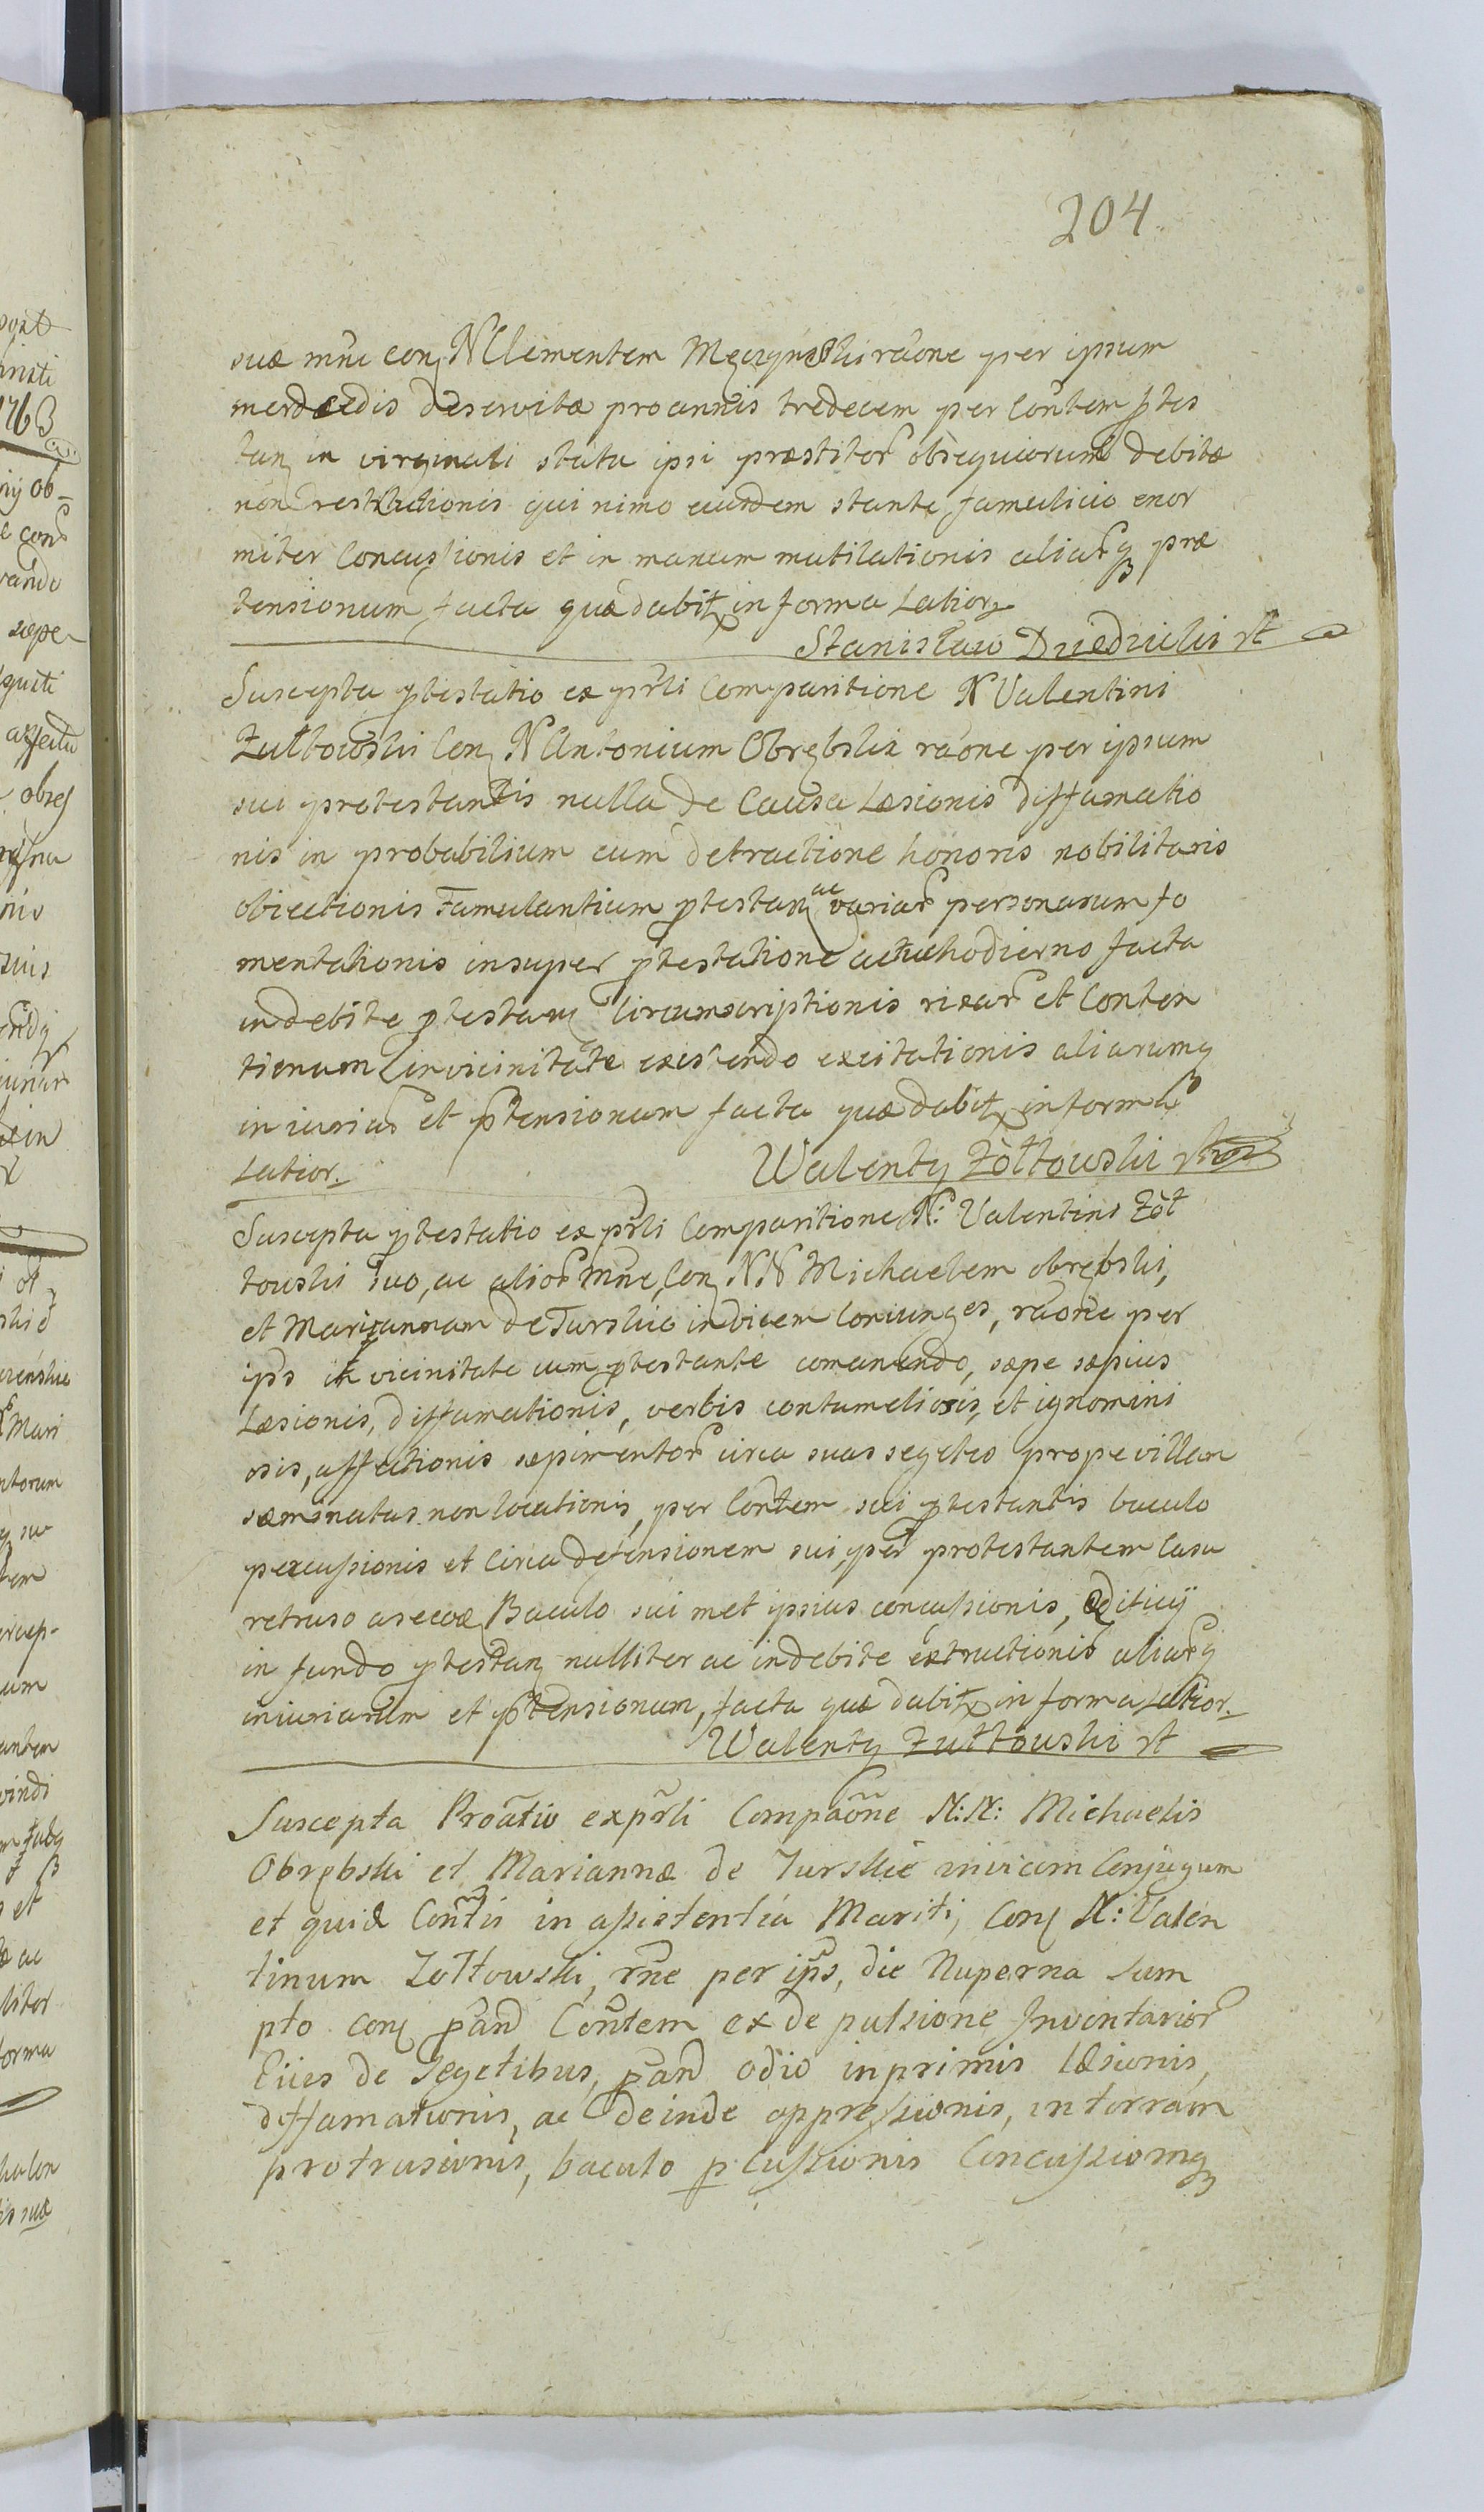 204
suæ mñe con N Clementem Męczynski rãone per ipsum
mercedis deservitæ pro annis tredecem per Contem ptes
tan in virginali statu ipsi præstitor obsequiorum debitæ
non restitutionis qui nimo eiusdem stante famulitio enor
miter Concussionis et in manum mutilationis aliarq præ
tensionum facta quæ dabit in forma Latior
Stanisław Dziedzicki rt
Suscepta ptestatio ex prli Comparitione N Valentini
Zułtowski Con N Antonium Obrębski rãone per ipsum
sui protestantis nulla de Causa Læsionis diffamatio
nis in probabilium cum detractione honoris nobilitaris
obiectionis Famulantium ptestan ac variar personarum fo
mentationis insuper ptestatione actu hodierno facta
indebite ptestan Circumscriptionis rixar et Conten
tionum in vicinitate existendo excitationis aliarumq
iniuriar et ptensionum facta quæ dabit in forma
Latior.
Walenty Zołtowski
Suscepta ptestatio ex prli Comparitione N: Valentini Zòł
towski suo, ac alior mñe, Con NN Michaelem obrębski,
et Mariannam de Turskie invicem Coniunges, rãone per
ips in vicinitate cum ptestante comanendo, sæpe sæpius
Læsionis, diffamationis, verbis contumeliosis, et ignomini
osis, affectionis sæpimentor circa suas segetes prope villam
sæminatas non locationis, per Contem sui ptestantis baculo
percussionis et Circa defensionem sui, per protestantem Casu
retruso a se eoæ Baculo sui met ipsius concussionis, ædificij
in fundo ptestan nulliter ac indebite extructionis aliarq
iniuriarum et ptensionum, facta quæ dabit in forma Latior.
Walenty Zułtowski rt
Suscepta Proãtio ex prli Compãone N: N: Michaelis
Obrębski et Mariannæ de Turskie invicem Conjugum
et quid Contis in assistentia Mariti, Con N: Valen
tinum Zołtowski, rñe per ips, die Nuperna Sum
pto con pand Contem ex de pulsione Inventarior
Eiies de Segetibus, pand odio inprimis læsionis,
diffamationis, ac deinde oppressionis, in terram
protrusionis, baculo pcussionis Concussionisq